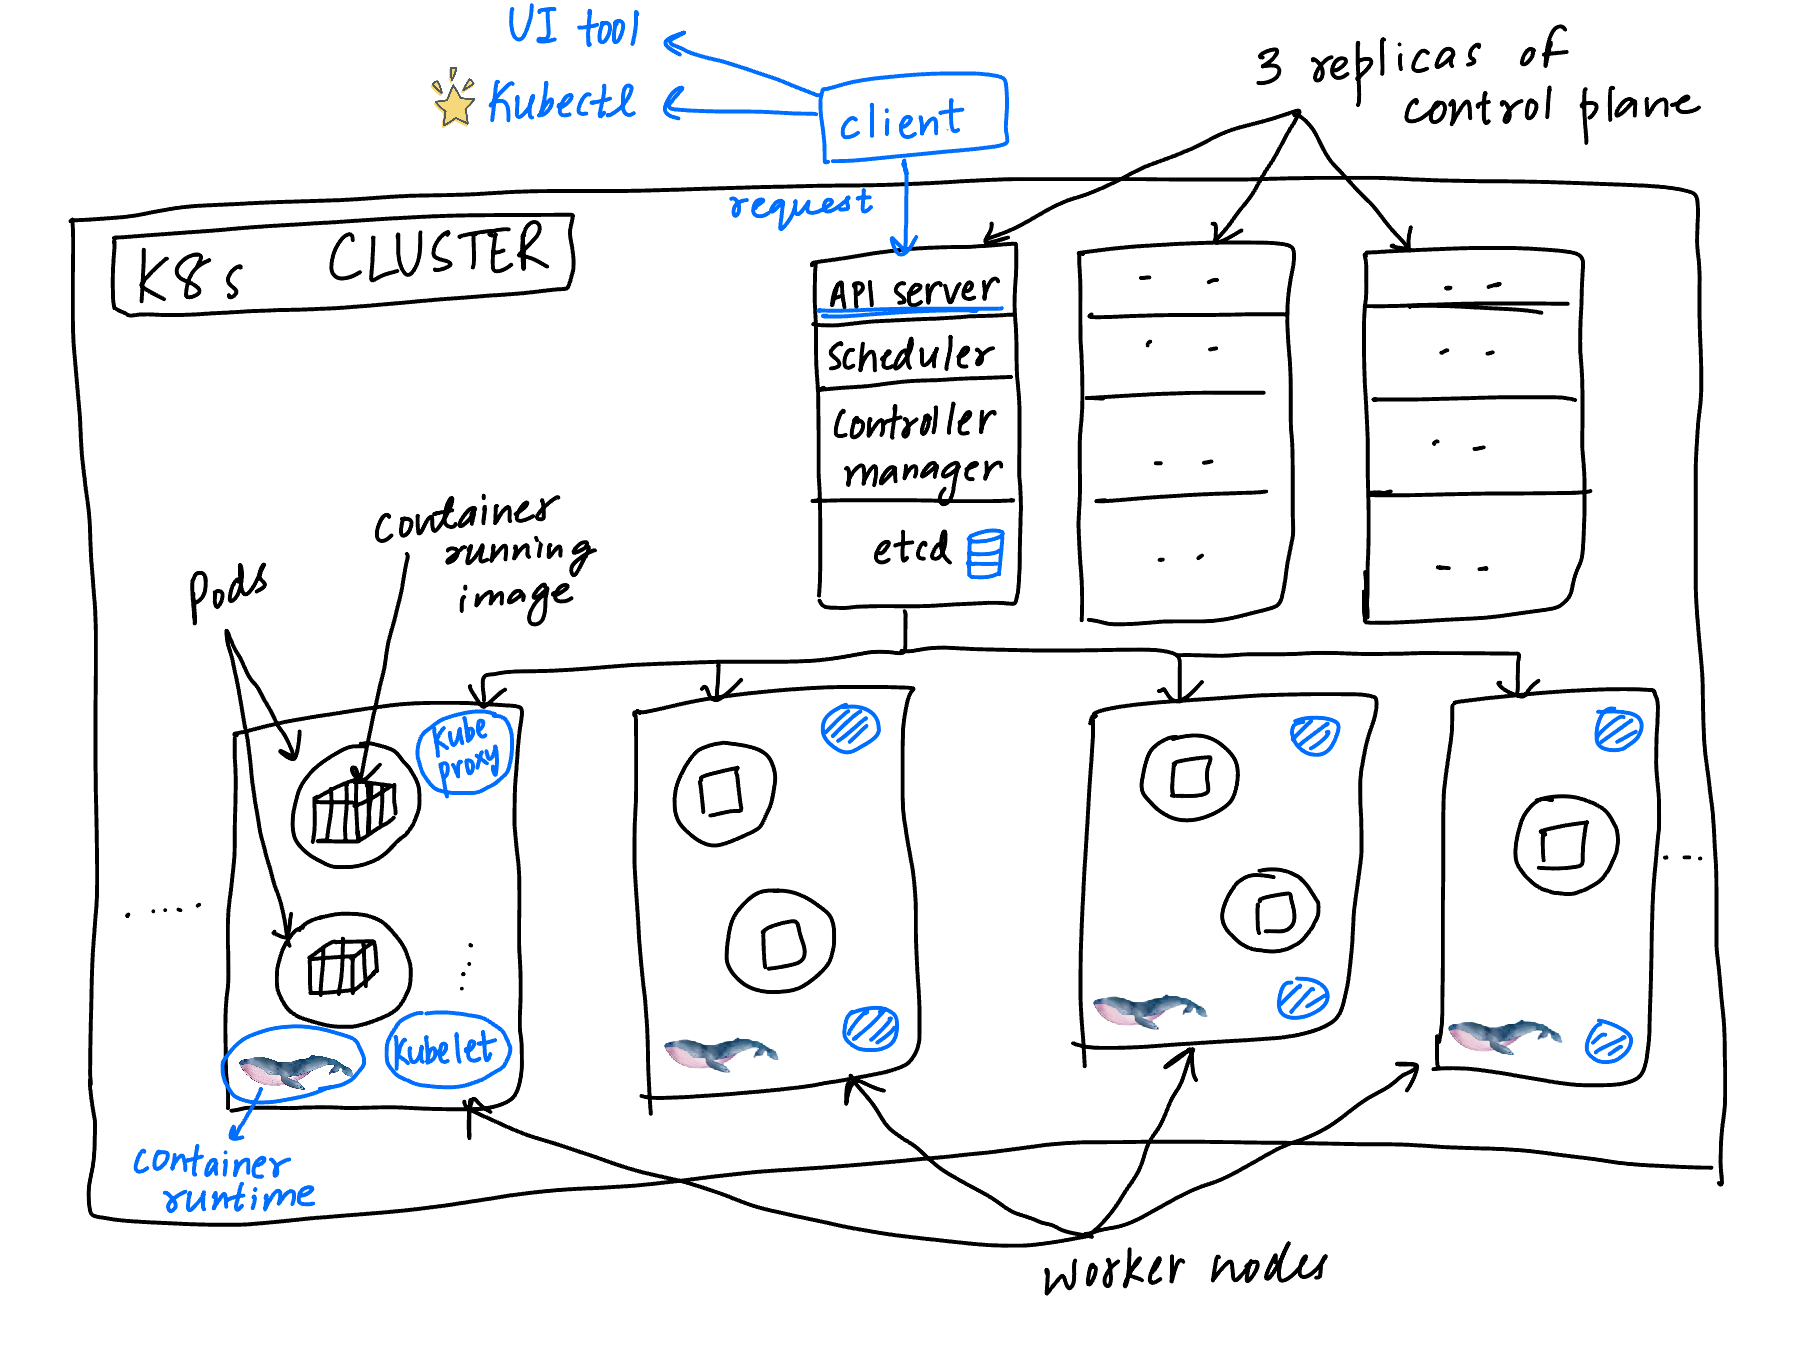 UI tool
Kubectl
client
request
3 replicas of
control plane
K8s CLUSTER
API server
Scheduler
Controller
manager
etcd
container
running
image
Pods
Kube
proxy
Kubelet
container
runtime
worker nodes